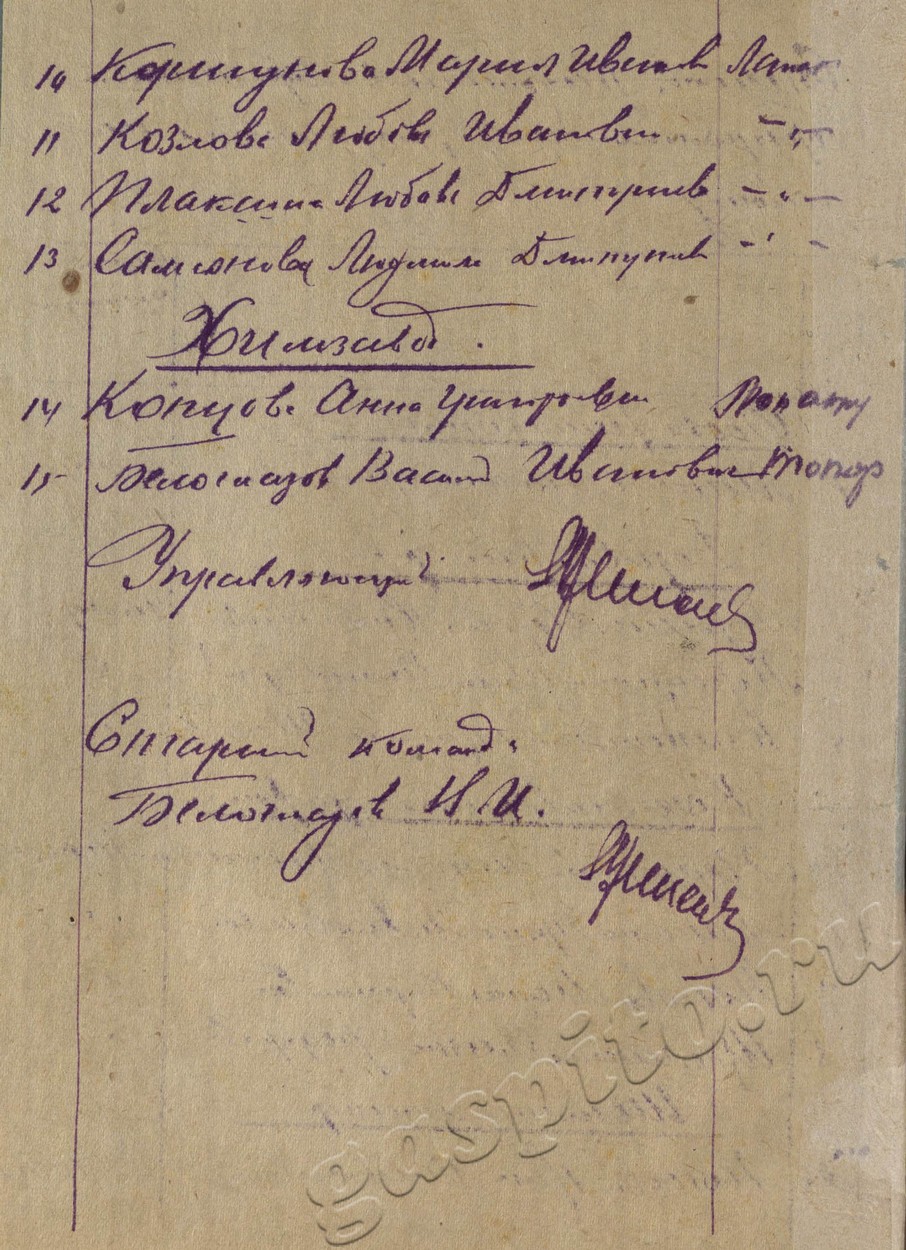 10 Коршунова Мария Иванов Лопат
11 Козлова Любовь Ивановн -"-
12 Плаксина Любовь Дмитриев -"-
13 Самсонова Людмила -"-
Химзавод.
14 Копцова Анна Григорьевн
15 Белоглазов Василий Иванович топор
Управляющий
Старший команд.
Белоглазов И.
gaspito.ru